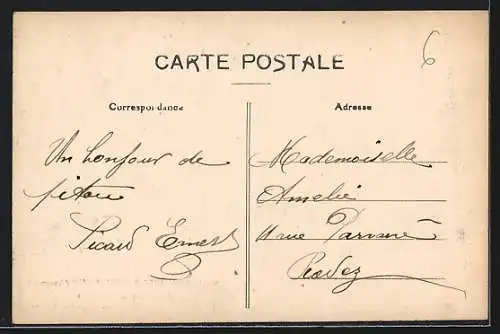 6
CARTE POSTALE
Correspondance
Adresse
Un bonjour de
Picard Ernest
Mademoiselle
Amelie
11 rue
Rodez